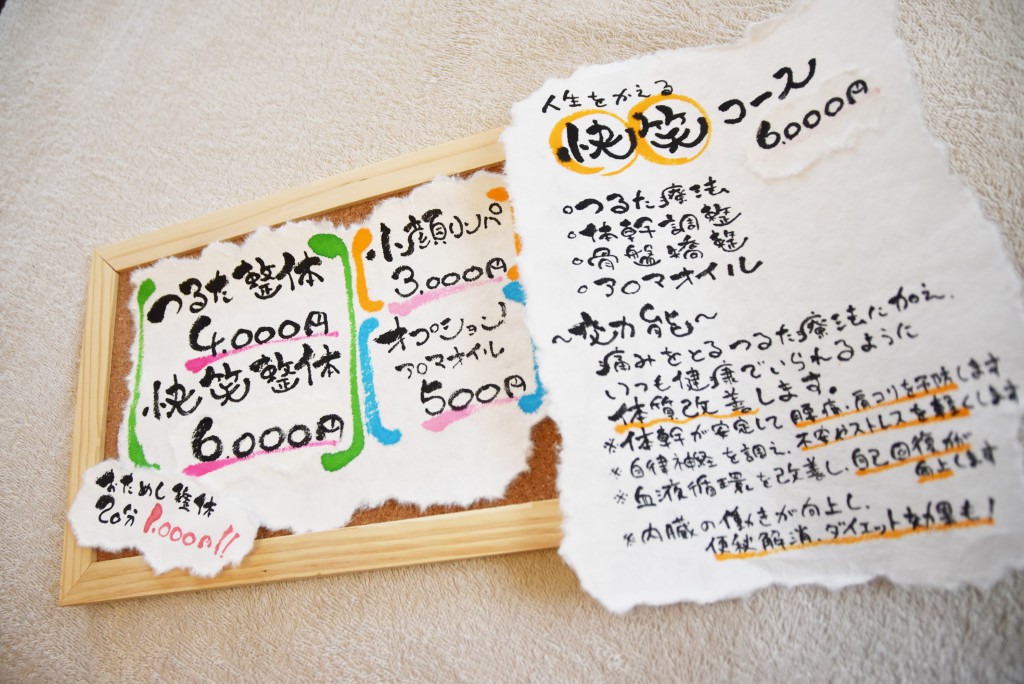 つるた整体
4.000円
快笑整体
6.000円
小顔リンパ
3.000円
オプション
アロマオイル
500円
おためし整体
20分 1.000円!!
人生をかえる
快笑コース
6.000円
○つるた療法
○体幹調整
○骨盤矯整
○アロマオイル
〜効能〜
痛みをとるつるた療法に加え、
いつも健康でいられるように
体質改善します。
※体幹が安定して腰痛、肩コリを予防します
※自律神経を調え、不安やストレスを軽くします
※血液循環を改善し、自己回復が
向上します
※内臓の働きが向上し、
便秘解消、ダイエット効果も!